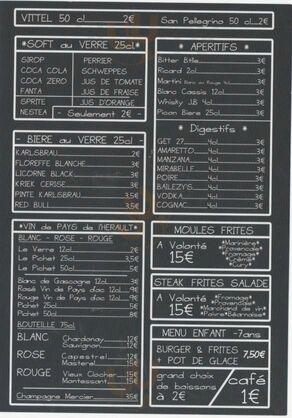 VITTEL 50 cl 2€
San Pellegrino 50 cl 2€
*SOFT au VERRE 25cl*
SIROP PERRIER
COCA COLA SCHWEPPES
COCA ZERO JUS DE TOMATE
FANTA JUS DE FRAISE
SPRITE JUS D'ORANGE
NESTEA - Seulement 2€ -
- BIERE au VERRE 25cl -
KARLSBRAU 2€
FLOREFFE BLANCHE 3€
LICORNE BLACK 3€
KRIEK CERISE 3€
PINTE KARLSBRAU
RED BULL
*VIN de PAYS de l'HERAULT*
BLANC - ROSE - ROUGE
Le Verre 12cl 2€
Le Pichet 25cl
Le Pichet 50cl
Blanc de Gascogne 12cl 3€
Rosé Vin de Pays d'oc 12cl
Rouge Vin de Pays d'oc 12cl
Pichet 25cl
Pichet 50cl
BOUTEILLE 75cl
BLANC Chardonnay 12€
Sauvignon 12€
ROSE Capestrel 12€
Masterel 15€
ROUGE Vieux Clocher 15€
Montessant 15€
Champagne Mercier 35€
APERITIFS
Bitter
Ricard 2cl
Martini
Blanc Cassis 12cl
Whisky J.B 4cl 3€
Picon Biere 25cl 3€
* Digestifs *
GET 27 4cl 3€
AMARETTO 4cl 3€
MANZANA 4cl 3€
MIRABELLE 4cl 3€
POIRE 4cl 3€
BAILEZY'S 4cl 3€
VODKA 4cl 3€
COGNAC 4cl 3€
MOULES FRITES
A Volonté
15€
*Marinière*
*Provencale*
*Fromage*
*Crème*
*Cury*
STEAK FRITES SALADE
A Volonté
15€
*Fromage*
*Provencale*
*Marchand de vin*
*Poivre*Béarnaise*
MENU ENFANT -7ans
BURGER & FRITES
+ POT DE GLACE
7,50€
grand choix
de boissons
à 2€
café
1€